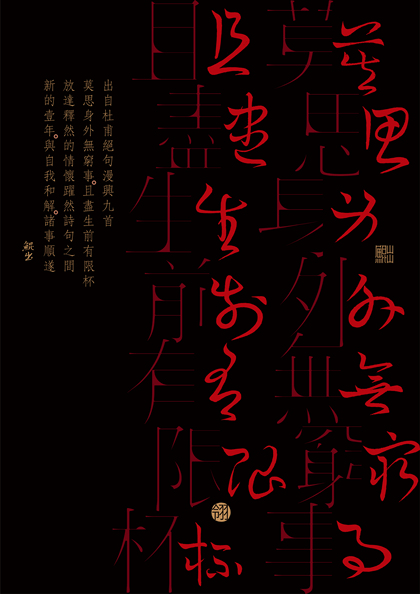 莫思身外無窮事
莫思身外無窮事
且盡生前有限杯
且盡生前有限杯
出自杜甫絕句漫興九首
莫思身外無窮事。且盡生前有限杯
放達釋然的情懷躍然詩句之間
新的壹年。與自我和解。諸事順遂